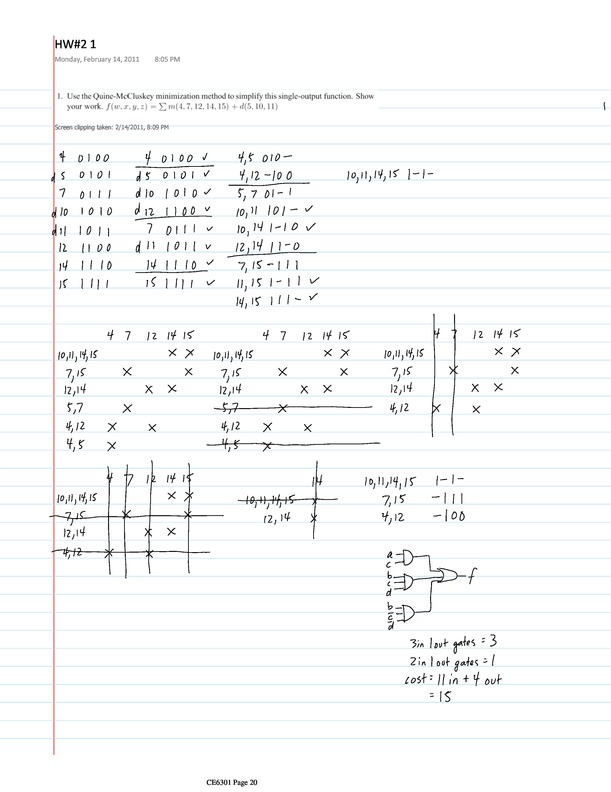 HW#2 1
Monday, February 14, 2011 8:05 PM
1. Use the Quine-McCluskey minimization method to simplify this single-output function. Show
your work. f(w, x, y, z) = ∑ m(4, 7, 12, 14, 15) + d(5, 10, 11)
Screen clipping taken: 2/14/2011, 8:09 PM
4 0100
d 5 0101
7 0111
d 10 1010
d 11 1011
12 1100
14 1110
15 1111
4 0100 ✓
d 5 0101 ✓
d 10 1010 ✓
d 12 1100 ✓
7 0111 ✓
d 11 1011 ✓
14 1110 ✓
15 1111 ✓
4,5 010-
4,12 -100
5,7 01-1
10,11 101- ✓
10,14 1-10 ✓
12,14 11-0
7,15 -111
11,15 1-11 ✓
14,15 111- ✓
10,11,14,15 1-1-
4 7 12 14 15
10,11,14,15 × ×
7,15 × ×
12,14 × ×
5,7 ×
4,12 × ×
4,5 ×
4 7 12 14 15
10,11,14,15 × ×
7,15 × ×
12,14 × ×
5,7 ×
4,12 × ×
4,5 ×
4 7 12 14 15
10,11,14,15 × ×
7,15 × ×
12,14 × ×
4,12 × ×
4 7 12 14 15
10,11,14,15 × ×
7,15 × ×
12,14 × ×
4,12 × ×
14
10,11,14,15 ×
12,14 ×
10,11,14,15 1-1-
7,15 -111
4,12 -100
a
c
b
c
d
b
c̅
d̅
f
3in 1out gates = 3
2in 1out gates = 1
cost = 11 in + 4 out
= 15
CE6301 Page 20